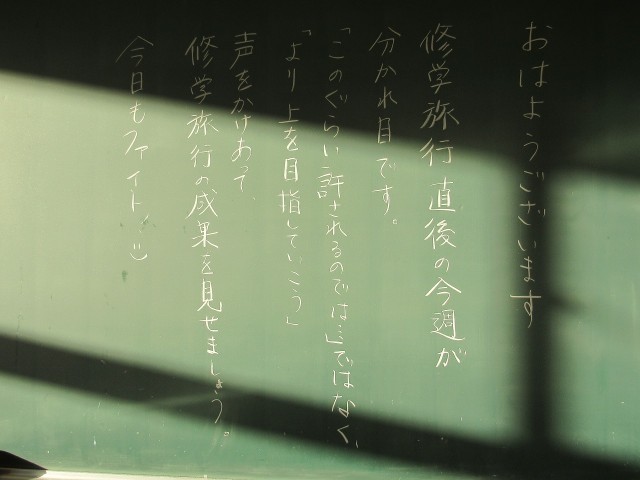 おはようございます
修学旅行直後の今週が
分かれ目です。
「このぐらい許されるのでは…」ではなく、
「より上を目指していこう」
声をかけあって、
修学旅行の成果を見せましょう。
今日もファイト!:)